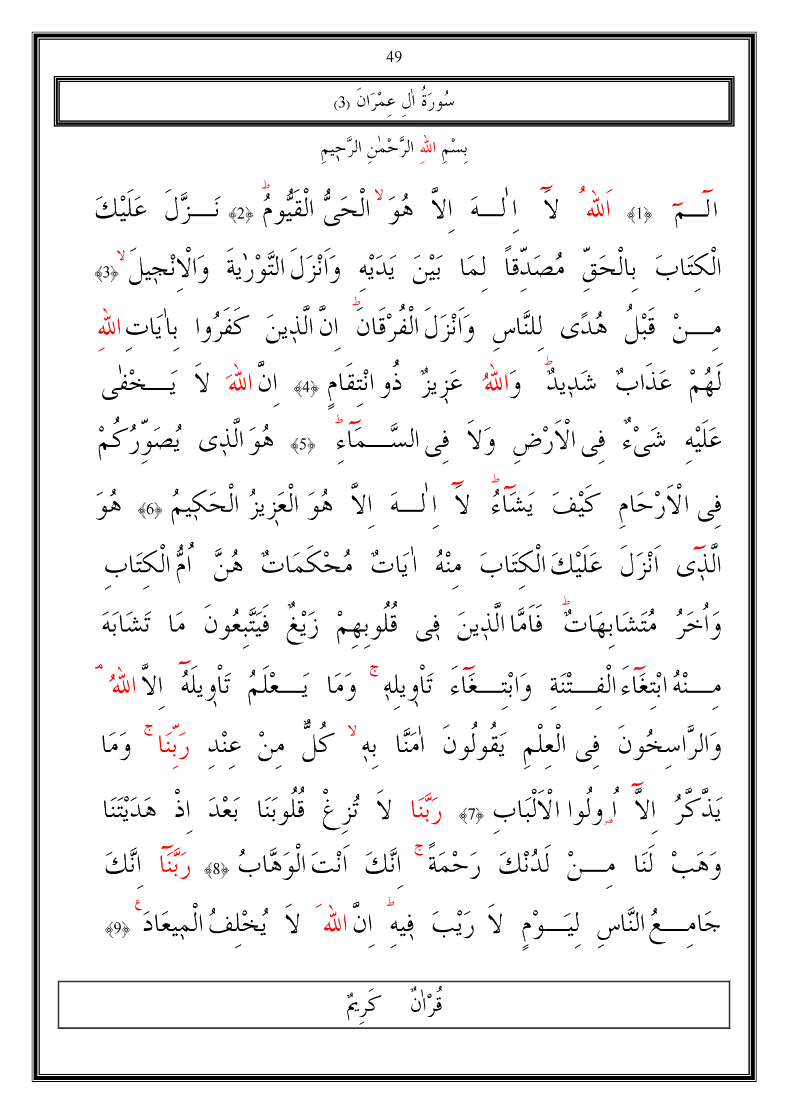 49
سُورَةُ اٰلِ عِمْرَانَ (3)
بِسْمِ اللهِ الرَّحْمٰنِ الرَّحٖيمِ
الٓـــمٓ ﴿1﴾ اَللهُ لَٓا اِلٰـــهَ اِلَّا هُوَۙ الْحَىُّ الْقَيُّومُؕ ﴿2﴾ نَـــزَّلَ عَلَيْكَ
الْكِتَابَ بِالْحَقِّ مُصَدِّقاً لِمَا بَيْنَ يَدَيْهِ وَاَنْزَلَ التَّوْرٰيةَ وَالْاِنْجٖيلَۙ ﴿3﴾
مِـــنْ قَبْلُ هُدًى لِلنَّاسِ وَاَنْزَلَ الْفُرْقَانَؕ اِنَّ الَّذٖينَ كَفَرُوا بِاٰيَاتِ اللهِ
لَهُمْ عَذَابٌ شَدٖيدٌؕ وَاللهُ عَزٖيزٌ ذُو انْتِقَامٍ ﴿4﴾ اِنَّ اللهَ لَا يَـــخْفٰى
عَلَيْهِ شَىْءٌ فِى الْاَرْضِ وَلَا فِى السَّـــمَٓاءِؕ ﴿5﴾ هُوَ الَّذٖى يُصَوِّرُكُمْ
فِى الْاَرْحَامِ كَيْفَ يَشَٓاءُؕ لَٓا اِلٰـــهَ اِلَّا هُوَ الْعَزٖيزُ الْحَكٖيمُ ﴿6﴾ هُوَ
الَّذٖٓى اَنْزَلَ عَلَيْكَ الْكِتَابَ مِنْهُ اٰيَاتٌ مُحْكَمَاتٌ هُنَّ اُمُّ الْكِتَابِ
وَاُخَرُ مُتَشَابِهَاتٌؕ فَاَمَّا الَّذٖينَ فٖى قُلُوبِهِمْ زَيْغٌ فَيَتَّبِعُونَ مَا تَشَابَهَ
مِـــنْهُ ابْتِغَٓاءَ الْفِـــتْنَةِ وَابْتِـــغَٓاءَ تَاْوٖيلِهٖۚ وَمَا يَـــعْلَمُ تَاْوٖيلَهُٓ اِلَّا اللهُۘ
وَالرَّاسِخُونَ فِى الْعِلْمِ يَقُولُونَ اٰمَنَّا بِهٖۙ كُلٌّ مِنْ عِنْدِ رَبِّنَاۚ وَمَا
يَذَّكَّرُ اِلَّٓا اُو۬لُوا الْاَلْبَابِ ﴿7﴾ رَبَّنَا لَا تُزِغْ قُلُوبَنَا بَعْدَ اِذْ هَدَيْتَنَا
وَهَبْ لَنَا مِـــنْ لَدُنْكَ رَحْمَةًۚ اِنَّكَ اَنْتَ الْوَهَّابُ ﴿8﴾ رَبَّنَٓا اِنَّكَ
جَامِـــعُ النَّاسِ لِيَـــوْمٍ لَا رَيْبَ فٖيهِؕ اِنَّ اللهَ لَا يُخْلِفُ الْمٖيعَادَࣖ ﴿9﴾
قُرْاٰنٌ كَرٖيمٌ